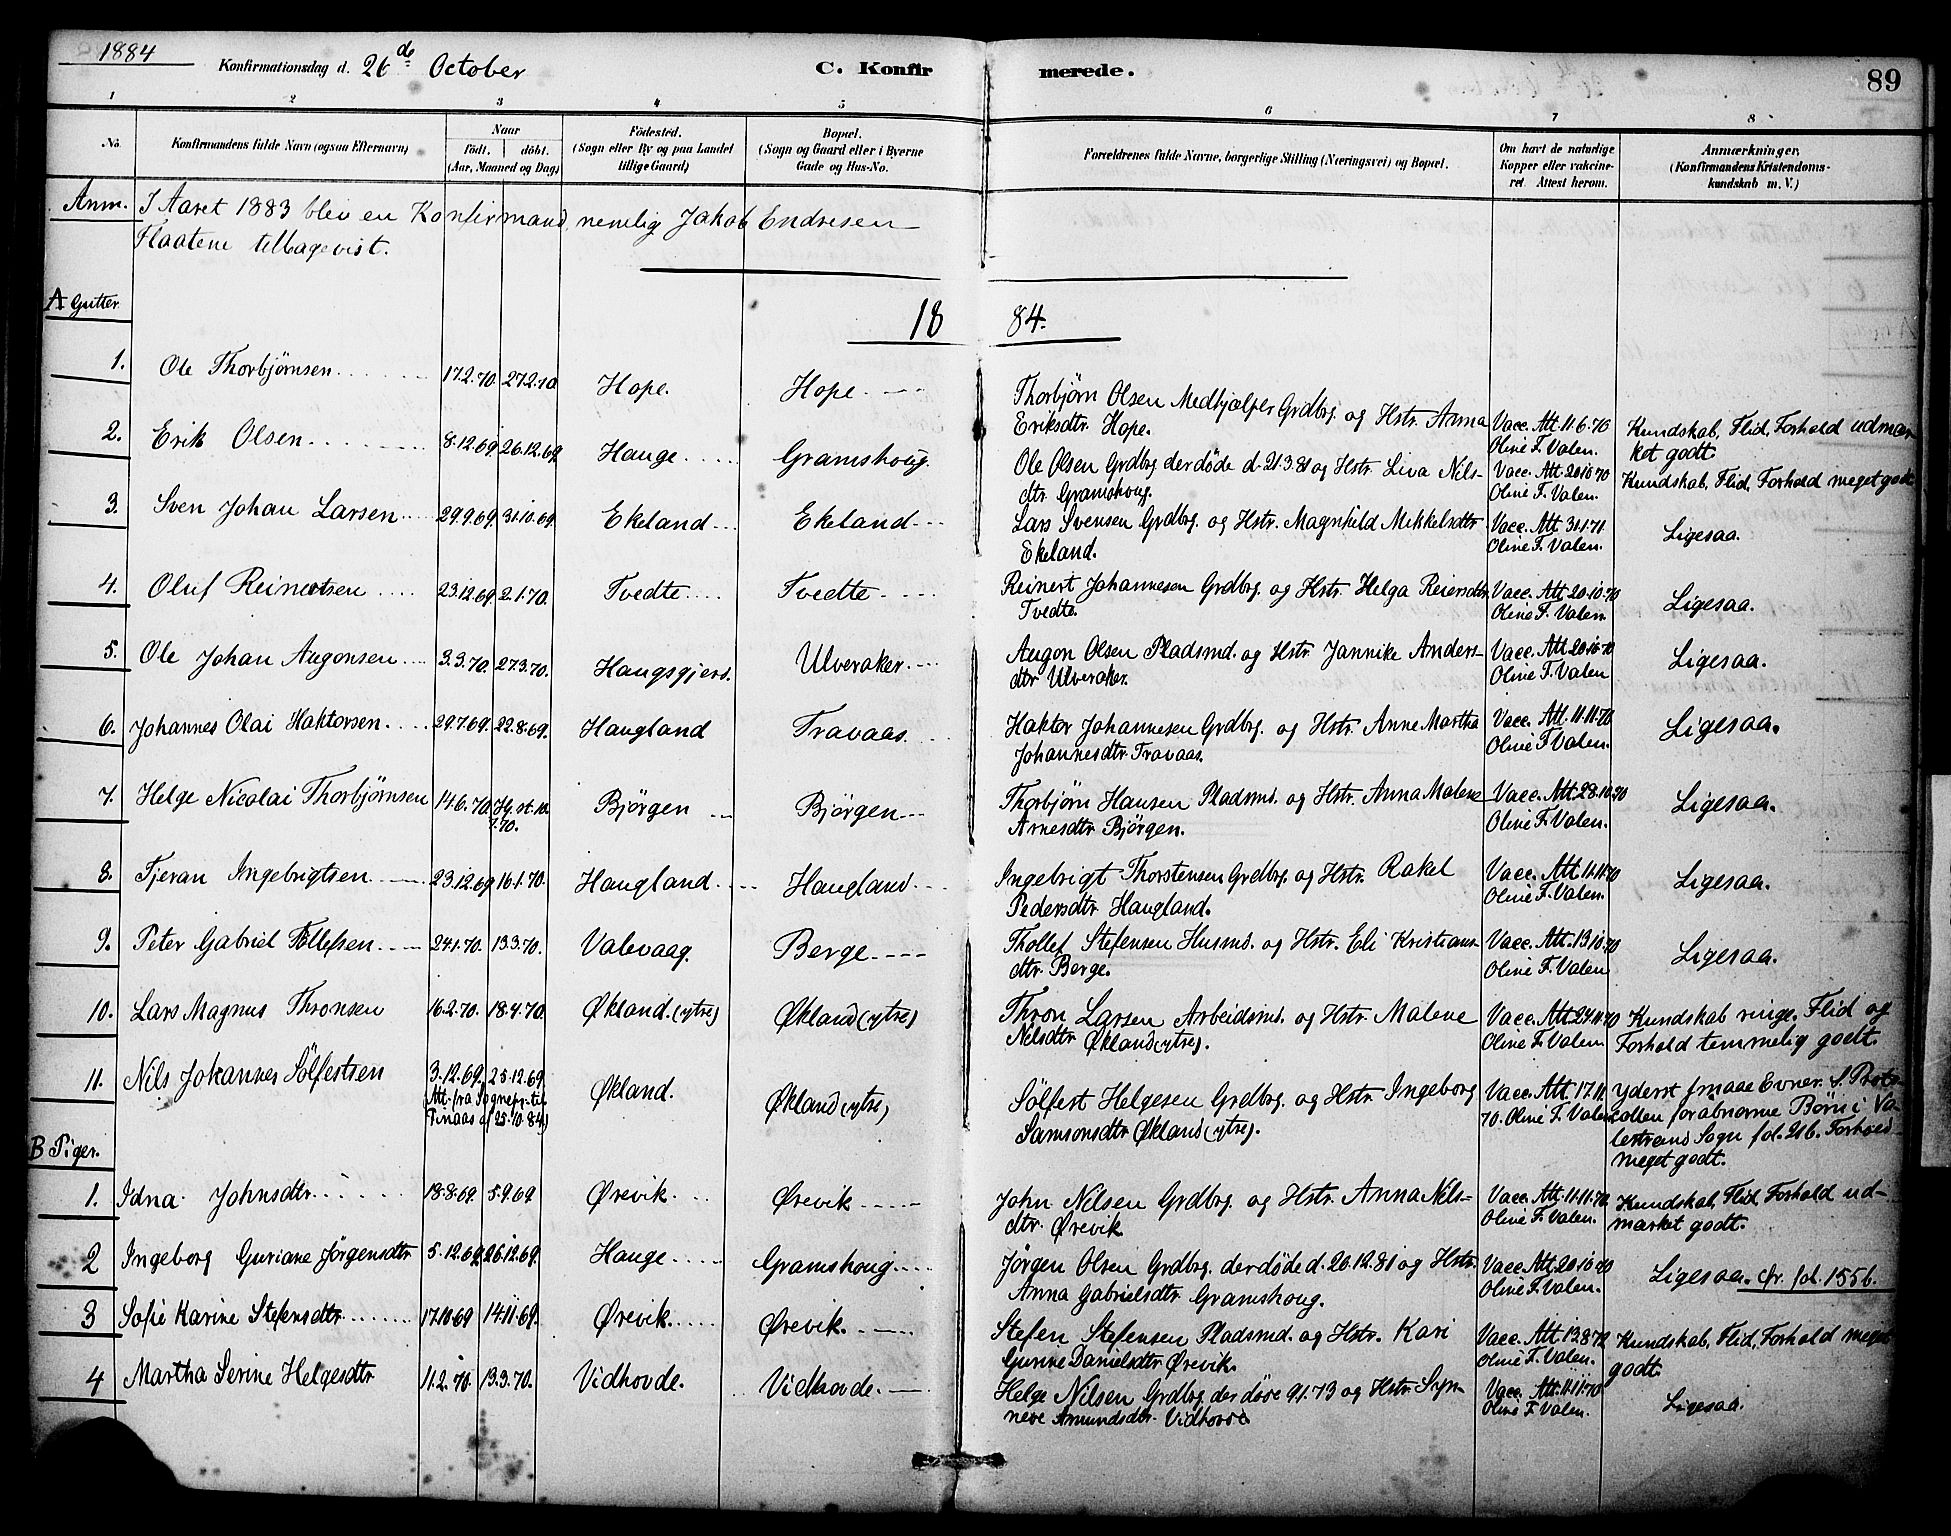 1884 Konfirmationsdag d. 26de October C. Konfirmerede. 89
1 2 3 4 5 6 7 8
No. Konfirmandens fulde Navn (ogsaa Efternavn) Naar født. døbt. (Aar, Maaned og Dag) Fødested. (Sogn eller By og paa Landet tillige Gaard.) Bopæl. (Sogn og Gaard eller i Byerne Gade og Hus-No. Forældrenes fulde Navne, borgerlige Stilling (Næringsvei) og Bopæl. Om havt de naturlige Kopper eller vakcineret. Attest herom. Anmærkninger. (Konfirmandens Kristendomskundskab m. V.)
Anm. I Aaret 1883 blev en Konfirmand, nemlig Jakob Endresen
Flaatene tilbagevist.
A Gutter
18 84.
1. Ole Thorbjørnsen 17.2.70 27.2.70 Hope. Hope. Thorbjørn Olsen Medhjælper Grdbrg. og Hstr. Anna
Eriksdtr. Hope. Vacc. Att. 11.6.70 Oline F. Valen. Kundskab, Flid, Forhold udmærket godt.
2. Erik Olsen 8.12.69 26.12.69 Hauge Gramshoug. Ole Olsen Grdbrg. der døde d. 21.3.81 og Hstr. Liva Nils-
dtr. Gramshoug. Vacc. Att. 20.10.70 Oline F. Valen. Kundskab, Flid, Forhold meget godt.
3. Sven Johan Larsen 29.9.69 31.10.69 Ekeland Ekeland Lars Svensen Grdbrg. og Hstr. Magnhild Mikkelsdtr
Ekeland. Vacc. Att. 31.1.71 Oline F. Valen. Ligesaa.
4. Oluf Reinertsen 23.12.69 2.1.70. Tvedte Tvedte Reinert Johannesen Grdbrg. og Hstr. Helga Reiersdtr.
Tvedte. Vacc. Att. 20.10.70 Oline F. Valen. Ligesaa.
5. Ole Johan Augonsen 3.3.70. 27.3.70. Haugsgjerd. Ulveraker Augon Olsen Pladsmd. og Hstr. Jannike Anders-
dtr Ulveraker. Vacc. Att. 20.10.70 Oline F. Valen Ligesaa.
6. Johannes Olai Haktorsen 29.7.69. 22.8.69. Haugland Travaas Haktor Johannesen Grdbrg. og Hstr. Anne Martha
Johannesdtr Travaas. Vacc. Att. 11.11.70 Oline F. Valen. Ligesaa.
7. Helge Nicolai Thorbjørnsen 14.6.70. Hj. st. 10.7.70. Bjørgen Bjørgen Thorbjørn Hansen Pladsmd. og Hstr. Anna Malene
Arnesdtr Bjørgen. Vacc. Att. 28.10.70 Oline F. Valen. Ligesaa.
8. Tjeran Ingebrigtsen 23.12.69 16.1.70. Haugland Haugland Ingebrigt Thorstensen Grdbrg. og Hstr. Rakel
Pedersdtr Haugland. Vacc. Att. 11.11.70 Oline F. Valen. Ligesaa.
9. Peter Gabriel Tollefsen 24.1.70. 13.3.70. Valevaag. Berge Thollef Stefensen Husmd. og Hstr. Eli Kristians-
dtr. Berge. Vacc. Att. 13.10.70 Oline F. Valen Ligesaa.
10. Lars Magnus Thronsen 16.2.70. 18.4.70. Økland. (ytre) Økland (ytre) Thron Larsen Arbeidsmd. og Hstr. Malene
Nilsdtr Økland (ytre). Vacc. Att. 24.11.70 Oline F. Valen. Kundskab ringe. Flid og Forhold temmelig godt.
11. Nils Johannes Sølfestsen 3.12.69. 25.12.69. Att. fra Sognepr. til Finaas af 25.10.84) Økland. Økland (ytre) Sølfest Helgesen Grdbrg. og Hstr. Ingeborg
Samsonsdtr Økland (ytre). Vacc. Att. 17.11.70. Oline F. Valen Yderst smaae Evner. S. Protocollen for abnorme Børn i Valestrand Sogn fol. 21b. Forhold meget godt.
B Piger.
1. Idna Johnsdtr. 18.8.69. 5.9.69 Ørevik. Ørevik John Nilsen Grdbrg. og Hstr. Anna Nils-
dtr. Ørevik Vacc. Att. 11.11.70. Oline F. Valen. Kundskab, Flid, Forhold udmarket godt.
2 Ingeborg Guriane Jørgensdtr 5.12.69. 26.12.69. Hauge Gramshoug Jørgen Olsen Grdbrg. der døde d. 20.12.81 og Hstr.
Anna Gabrielsdtr Gramshoug. Vacc. Att. 20.10.70 Oline F. Valen. Ligesaa. Cfr. fol. 155b.
3 Sofie Karine Stefensdtr 17.10.69 14.11.69. Ørevik Ørevik. Stefen Stefensen Pladsmd. og Hstr. Kari
Gurine Danielsdtr Ørevik. Vacc. Att. 13.8.72 Oline F. Valen. Kundskab, Flid, Forhold meget godt.
4 Martha Serine Helgesdtr 11.2.70. 13.3.70. Vidhovde. Vidhovde. Helge Nilsen Grdbrg. der døde 9.1.73 og Hstr. Syn-
neve Amundsdtr. Vidhovde Vacc. Att. 11.11.70 Oline F. Valen. Ligesaa.